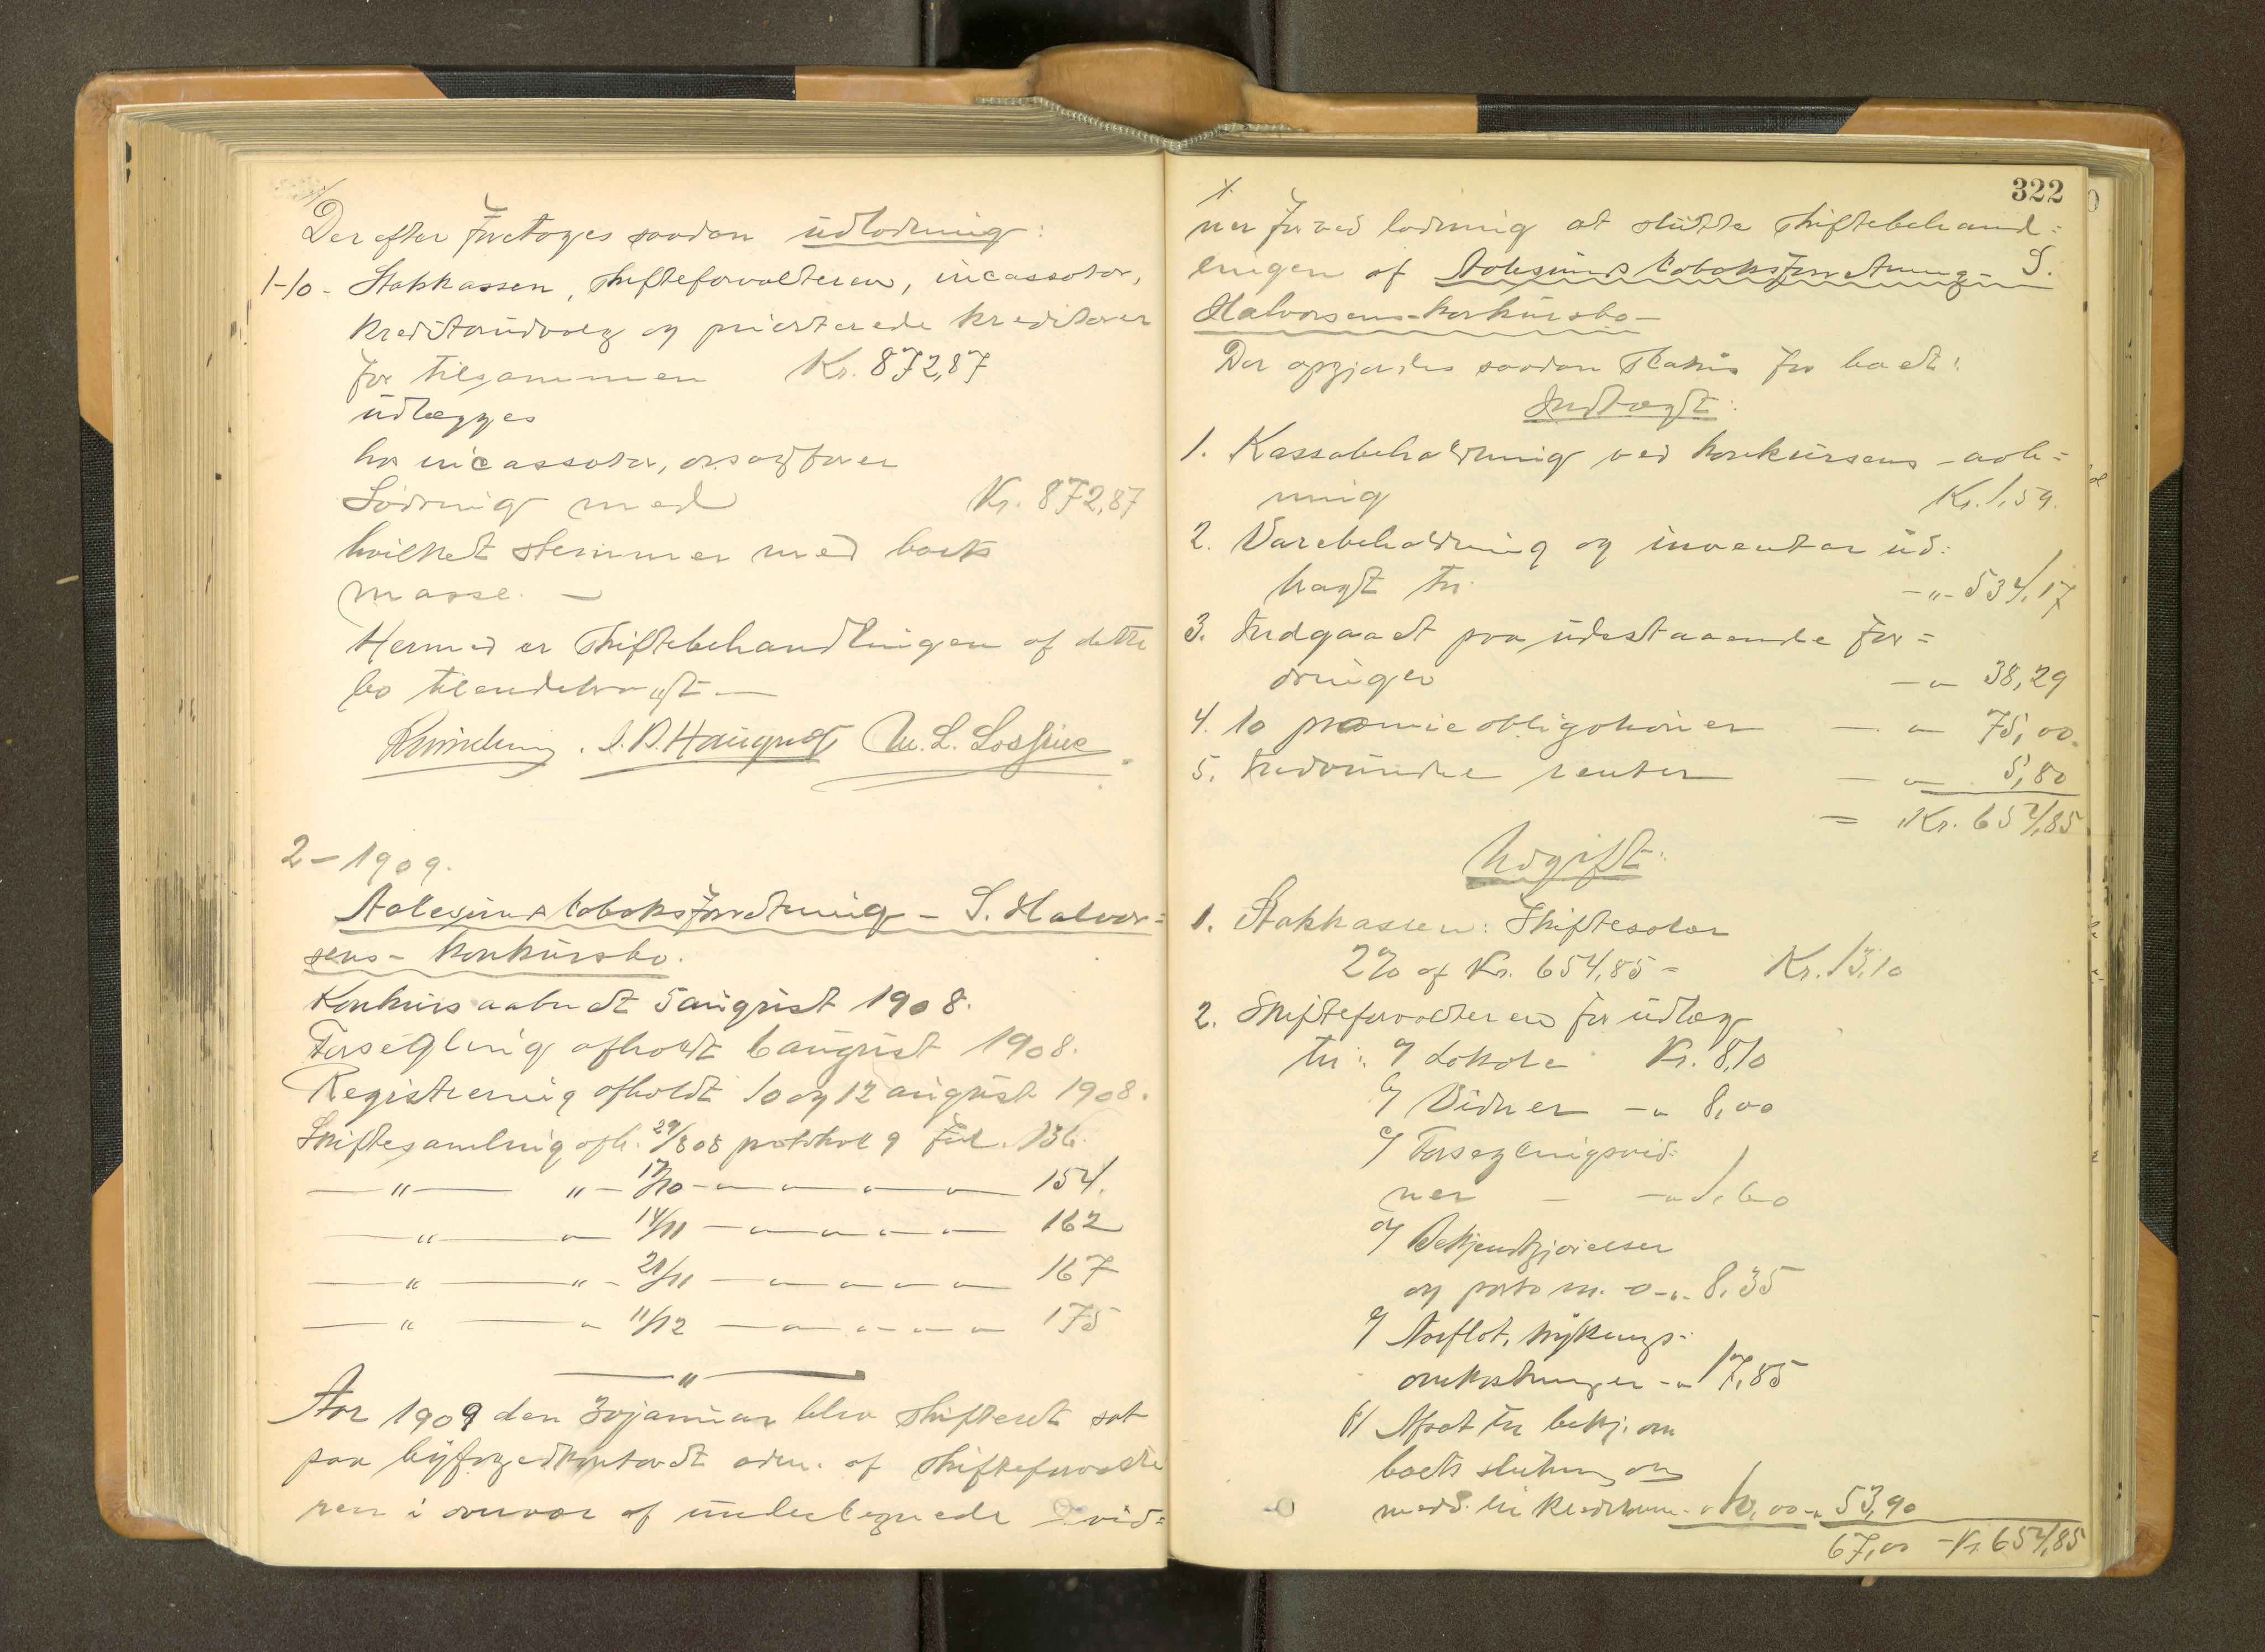 Derefter foretoges saadan udlodning:
1-10 - Stakkassen, skifteforvalteren, incassator,
kreditorudvalg og priorterede kreditorer
for tilsammen Kr. 872,87
udlægges
hos incassator, o.r.sagfører
Lødrnig med Kr. 872,87
hvilket stemmer med boets
masse. —
Hermed er skiftebehandlingen af dette
bo tilendebragt —
J. A. Haugnæss M. L. Lossius
2 - 1909.
Aalesunds tobaksforretning - S. Halvor=
sens - konkursbo.
Konkurs aabnedt 5 august 1908.
Forsegling afholdt 6 august 1908.
Registrering afholdt 10 og 12 august 1908.
Skiftesamling afh. 29/8 08 protokol 9 fol. 136.
— " — " — 17/10 — " — " — " — " — 154.
— " — " — 14/11 — " — " — " — " — 162
— " — " — 21/11 — " — " — " — " — 167
— " — " — 11/12 — " — " — " — " — 175
— " —
Aar 1909 den 30 januar blev skifteret sat
paa byfogedkontoret adm. af skifteforvalte
ren i overvær af undertegnede vid=
322
ner for ved lodning at slutte skiftebehand=
lingen af Aalesunds tobaksforretning - S.
Halvorsens - konkursbo -
Der opgjordes saadan status for boet:
Indtægt:
1. Kassabeholdning ved konkursens - aab=
ning Kr. 1,59.
2. Varebeholdning og inventar ud=
bragt til - " - 534,17
3. Indgaaet paa udestaaende for=
dringer — " 38,29
4. 10 præmieobligationer — " 75,00.
5. Indvundne renter — " 5,80
= Kr. 654,85
Udgift:
1. Stakkassen: Skiftesalær
2% af Kr. 654,85 = Kr. 13,10
2. Skifteforvalteren for udlæg
til: a/ Lokale Kr. 8,10
b/ Vidner - " 8,00
c/ Forseglingsvid=
ner - - " 1,60
d/ Bekjendtgjørelser
og porto m. - " - 8,35
e/ trykings=
omkostninger - " 17,85
f/ Afsat til bekj. om
boets slutning og
medd. til kreditorerne - " 10,00 - " 53,90
67,00 - Kr. 654,85